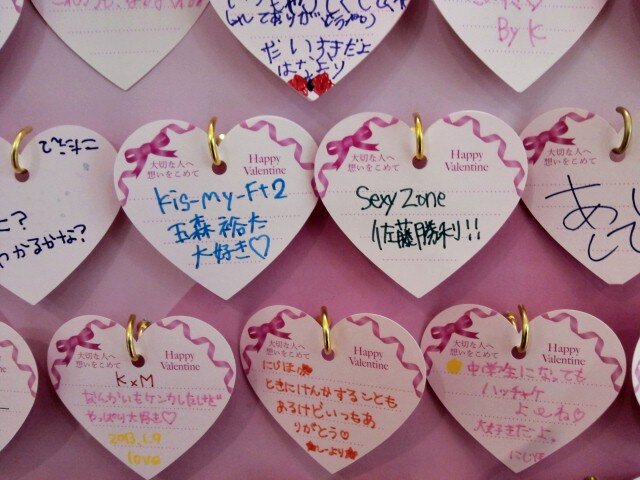 しれてありがとう
だいすきだよ
はなより
By K.
こたえ?
かるかな?
大切な人へ
想いをこめて
Happy
Valentine
Kis-My-Ft2
玉森裕太
大好き♡
大切な人へ
想いをこめて
Happy
Valentine
Sexy Zone
佐藤勝利!!
大切な人へ
想いをこめて
あ
して
大切な人へ
想いをこめて
Happy
Valentine
K×M
なんかいもケンカしたけど
やっぱり大好き♡
2013.1.9
love
大切な人へ
想いをこめて
Happy
Valentine
にじほ
ときにけんかすることも
あるけどいつもあ
りがとう♡
しーより
大切な人へ
想いをこめて
Happy
Valentine
中学生になっても
ハッチャケ
よーね♡
大好きだよ。
にじほ